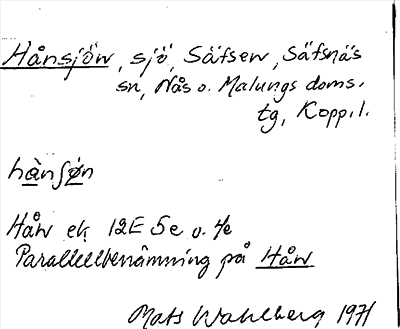 Hånsjön, sjö, Säfsen, Säfsnäs
sn, Nås o. Malungs doms.
tg, Kopp.l.
hànʃø̀n
Hån ek 12E 5e o. 4e
Parallellbenämning på Hån
Mats Wahlberg 1971